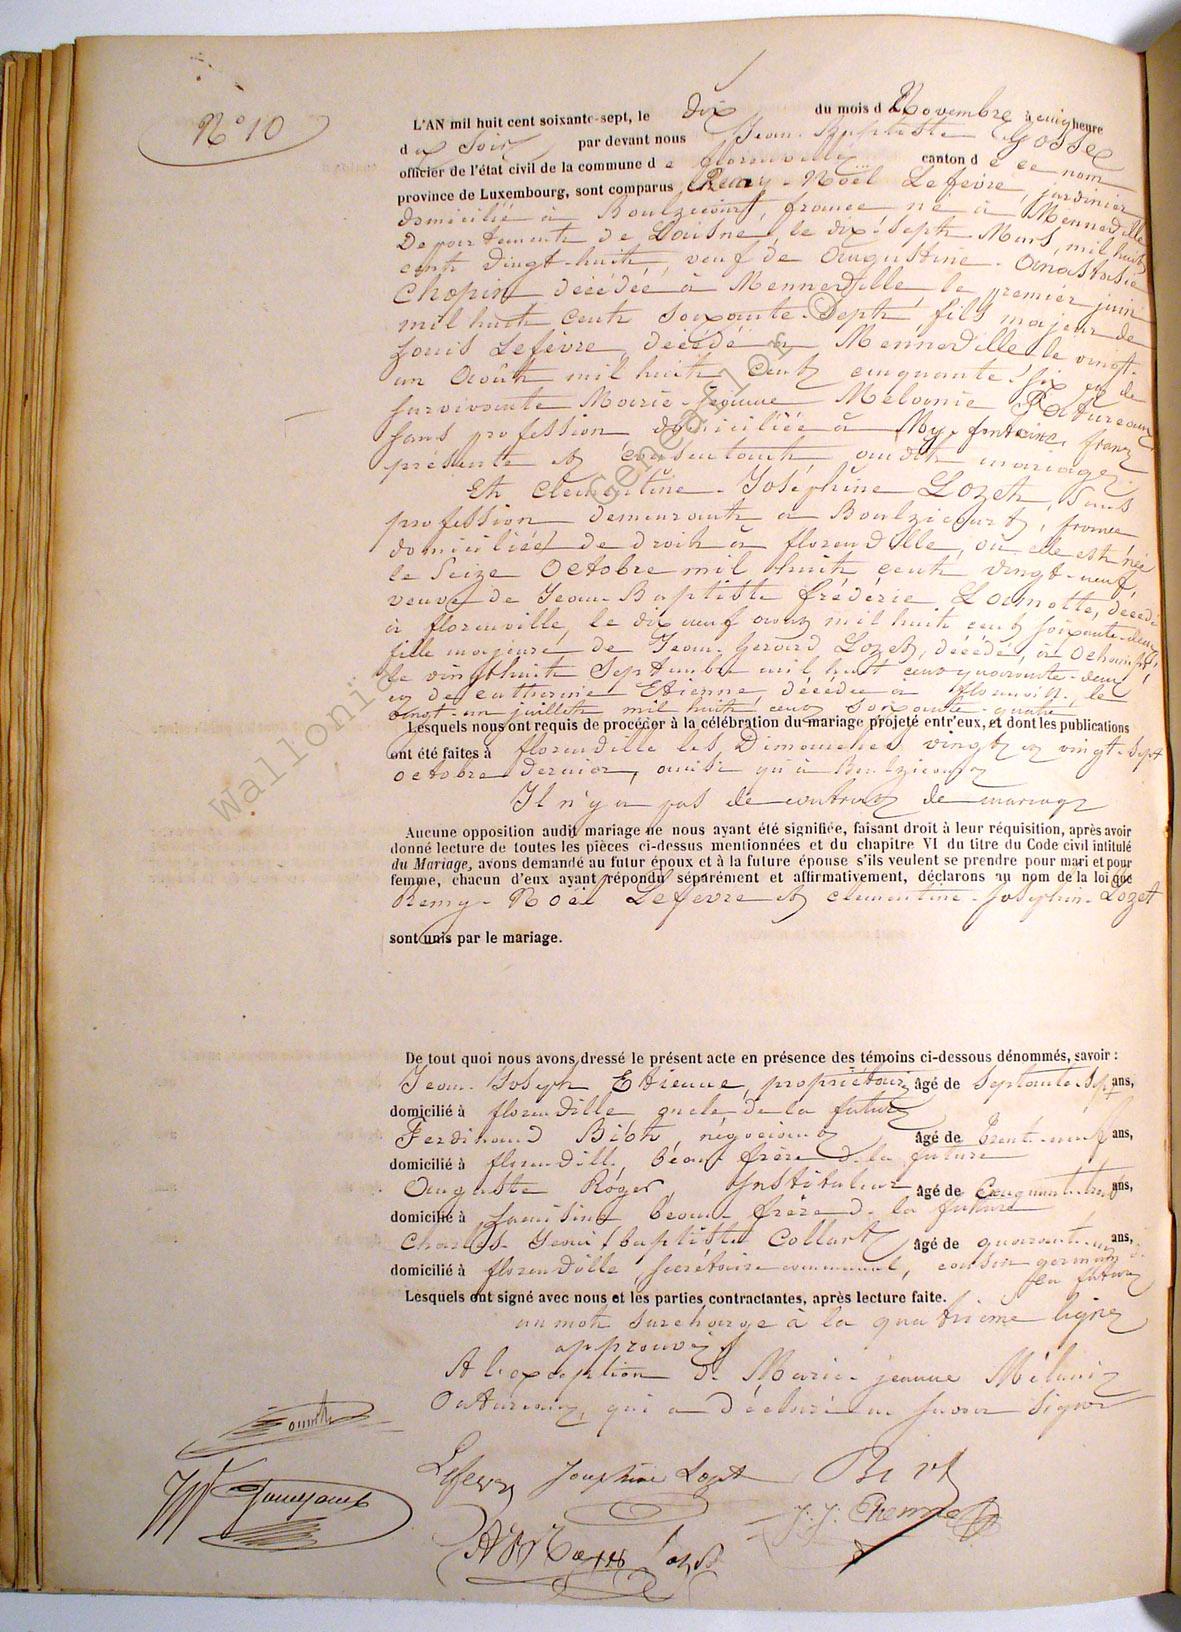 N° 10
L'AN mil huit cent soixante-sept, le dix du mois d Novembre à cinq heure
d u Soir par devant nous Jean-Baptiste Gosset
officier de l'état civil de la commune d e florenville canton d e ce nom
province de Luxembourg, sont comparus Remy-Noël Lefèvre, jardinier
domicilié à Boulzicourt, france né à Menneville
Departement de L'aisne, le dix-sept Mars mil huit
cent vingt-huit, veuf de Augustine-Anastasie
Chopin décédée à Menneville le premier juin
mil huit cent soixante-sept, fils majeur de
Louis Lefèvre, décédé à Menneville le vingt-
un Août mil huit cent cinquante-six et de
survivante Marie-jeanne Melanie
sans profession domiciliée à france
présente et consentante audit mariage.
Et Clementine-Joséphine Lozet, sans
profession demeurant à Boulzicourt, france
domiciliée de droit à florenville, où elle est née
le Seize Octobre mil huit cent vingt-neuf,
veuve de Jean-Baptiste frédéric Lamotte, décédé
à florenville, le dix neuf mil huit cent soixante-deux
fille majeure de Jean-Gerard Lozet, décédé à
le vingt huit Septembre mil huit cent quarante-deux
et de catherine Etienne, décédée à florenville, le
vingt-un juillet mil huit cent soixante-quatre
Lesquels nous ont requis de procéder à la célébration du mariage projeté entr'eux, et dont les publications
ont été faites à florenville les Dimanches vingt et vingt-sept
octobre dernier, ainsi qu'à Boulzicourt
Il n'y a pas de contrat de mariage
Aucune opposition audit mariage ne nous ayant été signifiée, faisant droit à leur réquisition, après avoir
donné lecture de toutes les pièces ci-dessus mentionnées et du chapitre VI du titre du Code civil intitulé
du Mariage, avons demandé au futur époux et à la future épouse s'ils veulent se prendre pour mari et pour
femme, chacun d'eux ayant répondu séparément et affirmativement, déclarons au nom de la loi que
Remy-Noël Lefevre et clementine-Josephine-Lozet
sont unis par le mariage.
De tout quoi nous avons dressé le présent acte en présence des témoins ci-dessous dénommés, savoir :
Jean-Joseph Etienne, propriétaire âgé de septante-sept ans,
domicilié à florenville oncle de la future
Ferdinand Biot, négociant âgé de trente-neuf ans,
domicilié à florenville, beau-frère de la future
Auguste Roger, Instituteur âgé de ans,
domicilié à beau-frère de la future
Charles-Jean-baptiste Collart âgé de quarante- ans,
domicilié à florenville, secrétaire communal, cousin germain
Lesquels ont signé avec nous et les parties contractantes, après lecture faite.
un mot surchargé à la quatrième ligne
approuvé.
A l'exception de Marie-jeanne Mélanie
qui a déclaré ne savoir signer
Lefevre Josephine Lozet Biot
J. J. Etienne
Wallonia Genealor ©